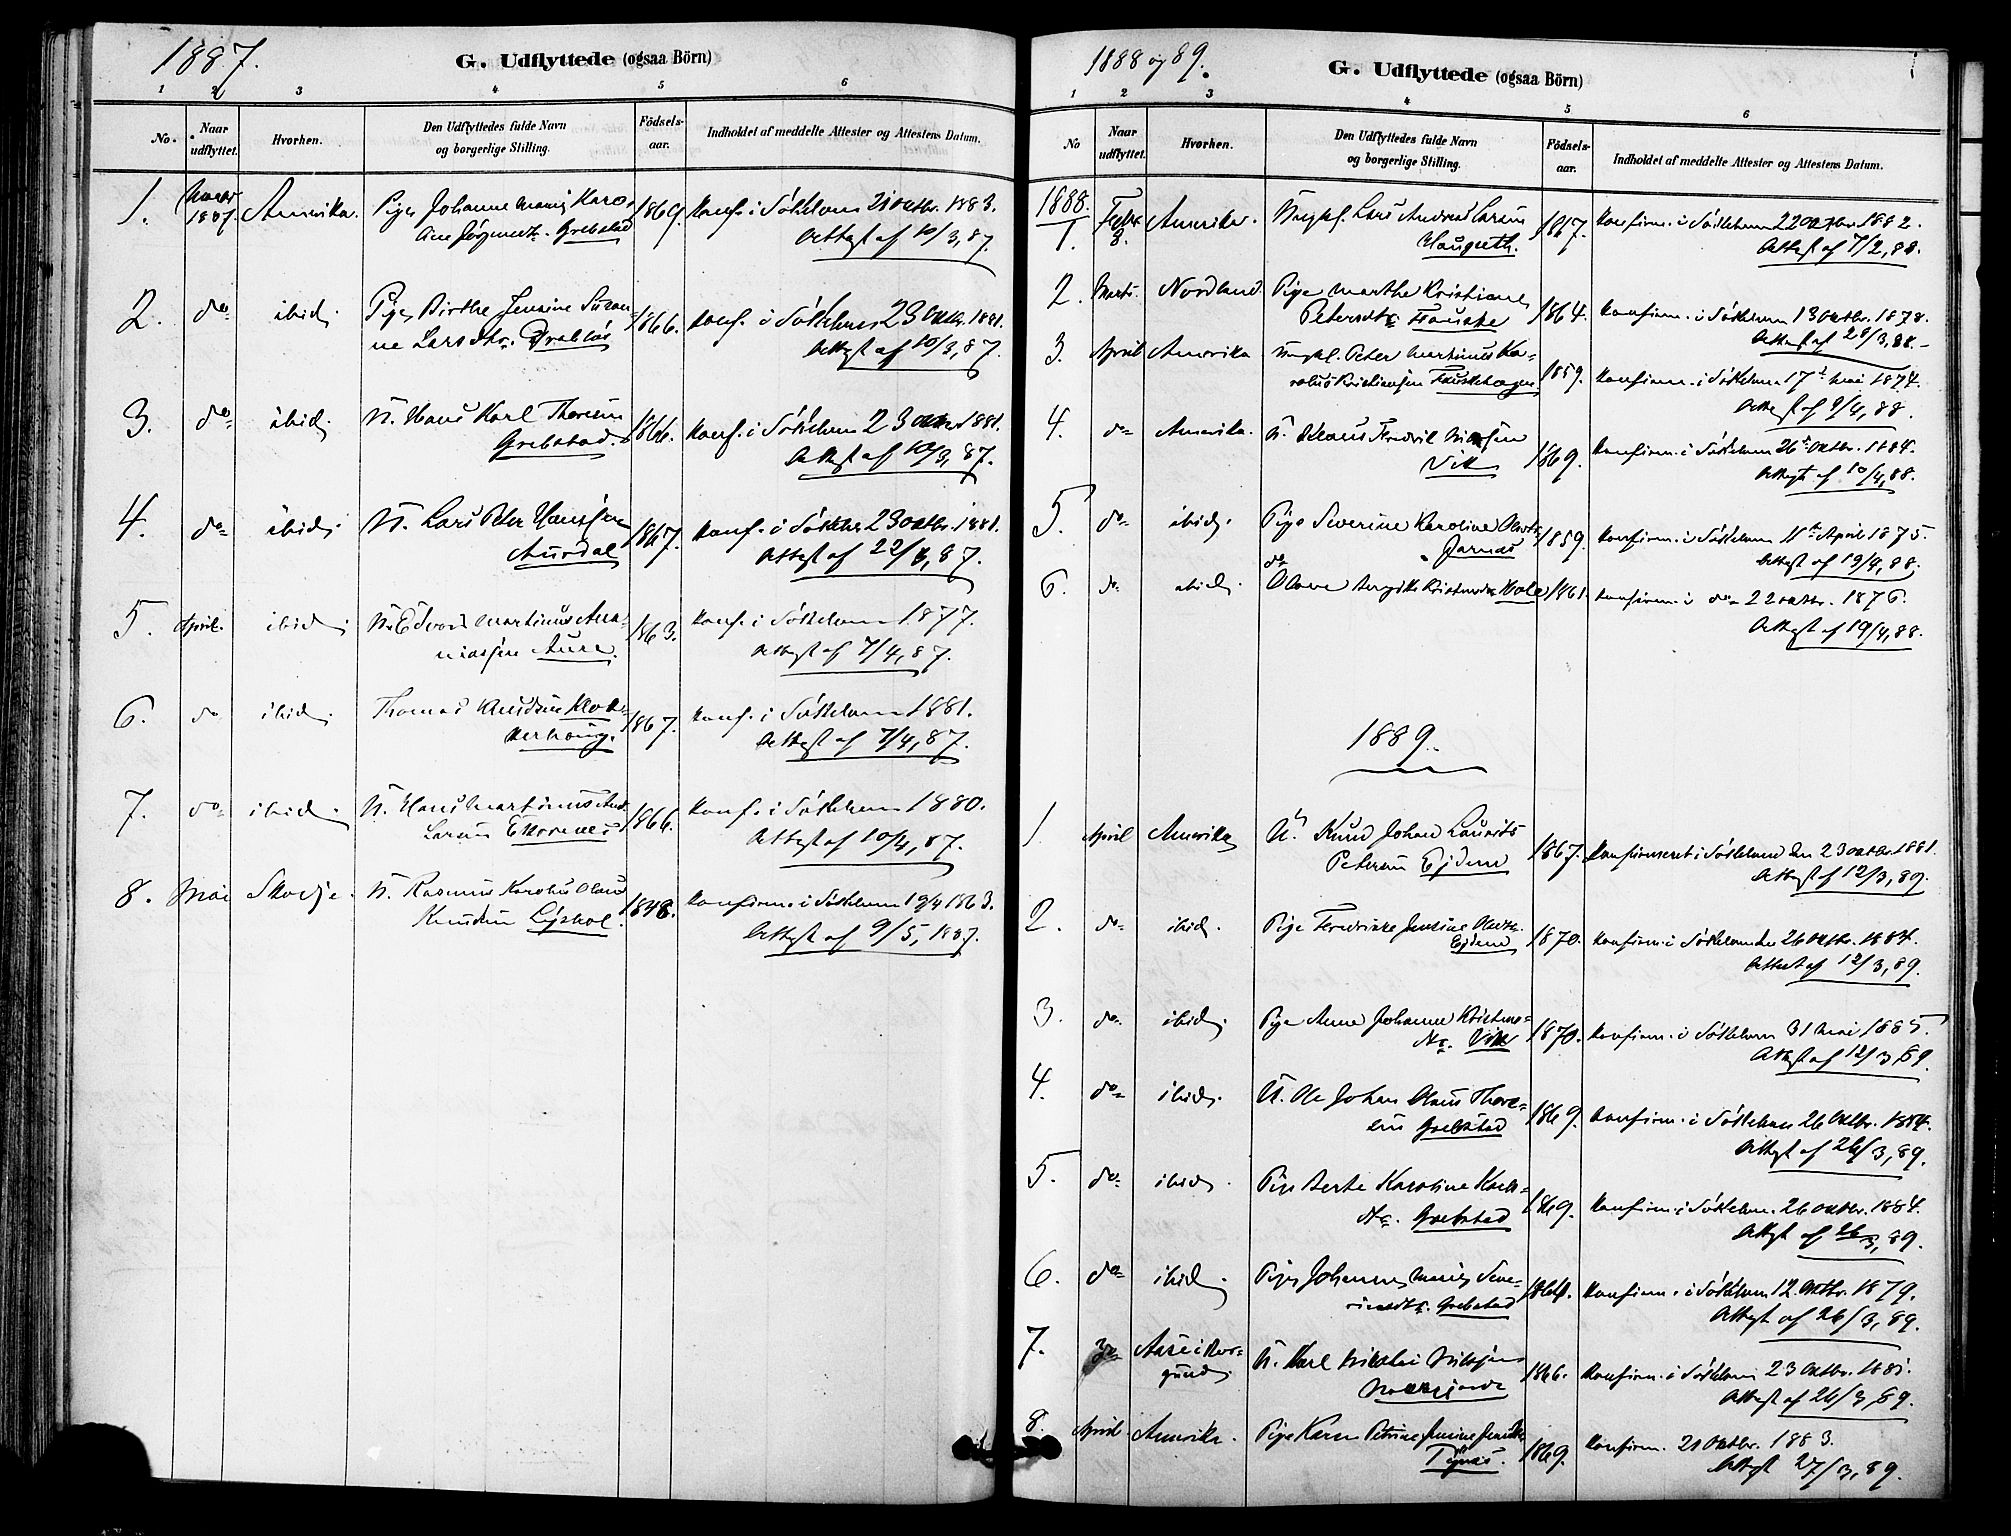 1887.
G. Udflyttede (ogsaa Börn)
1 2 3 4 5 6
No. Naar udflyttet. Hvorhen. Den Udflyttedes fulde Navn og borgerlige Stilling. Födsels-aar. Indholdet af meddelte Attester og Attestens Datum.
1. 1887. Amerika. Pige Johanne Marie Karo- 1869. Konf. i Sökkelven 21 oktbr. 1883.
Grebstad Attest af 10/3, 87.
2. do ibid. Pige Birthe Jensine Susan- 1866. Konf. i Sökkelven 23 oktbr. 1881.
ne Larsdtr. Drabløs Attest af 10/3, 87.
3. do ibid. U. Hans Karl Thoresen 1866. Konf. i Sökkelven 23 oktbr 1881.
Grebstad. Attest af 10/3, 87.
4. do ibid. U. Lars Peter Hansen 1867. Konf. i Søkkelv. 23 oktbr. 1881.
Aursdal Attest af 22/3, 87.
5. April. ibid. U. Edvard Martinus Ana- 1863. Konf. i Søkkelven 1877.
niassen Aure. Attest af 7/4, 87.
6. do ibid. Thomas Knudsen Klok- 1867. Konf. i Søkkelven 1881.
kerhoug. Attest af 7/4, 87.
7. do ibid. U. Hans Martinus 1866. Konf. i Søkkelven 1880.
Larsen Ekornes Attest af 10/4, 87.
8. Mai Skodje. U. Rasmus Karolus Olaus 1848. Konfirm. i Søkkelven 19/4 1863.
Knudsen Lyshol. Attest af 9/5, 1887.
1888 og 89.
G. Udflyttede (ogsaa Börn)
1 2 3 4 5 6
No Naar udflyttet. Hvorhen. Den Udflyttedes fulde Navn og borgerlige Stilling. Födsels-aar. Indholdet af meddelte Attester og Attestens Datum.
1888.
1. Febr. 8. Amerika. Ungkl. Lars Andreas Larsen 1867. Konfirm. i Søkkelven 22 oktbr. 1882.
Haugseth. Attest af 7/2, 88.
2. Marts. Nordland. Pige Marthe Kristiane 1864. Konfirm. i Søkkelven 13 oktbr. 1878.
Petersdtr. Fauske Attest af 28/3, 88.
3. April Amerika Ungkl. Peter Martinus Ka- 1859. Konfirm. i Søkkelven 17 Mai 1874.
rolus Kristiansen Fauskehagen Attest af 9/4, 88.
4. do Amerika. U. Klaus Fredrik Nilssen 1869. Konfirm. i Søkkelven 26 oktbr. 1884.
Vik Attest af 10/4, 88.
5. do ibid. Pige Severine Karoline 1859. Konfirm. i Søkkelven 11te April 1875.
Jarnæs Attest af 19/4, 88.
6. do ibid. do Hole 1861. Konfirm. i do 22 oktbr. 1876.
Attest af 19/4, 88.
1889.
1. April Amerika U. Knud Johan Laurits 1867. Konfirmeret i Søkkelven den 23 oktbr. 1881.
Petersen Ejdem Attest af 12/3, 89.
2. do ibid. Pige Fredrikke Jensine 1870. Konfirm. i Søkkelven den 26 oktbr. 1884.
Ejdem Attest af 12/3, 89.
3. do ibid. Pige Anne Johanne 1870. Konfirm. i Søkkelven 31 Mai 1885.
Vik Attest af 12/3, 89.
4. do ibid. U. Ole Johan Olaus Thore- 1869. Konfirm. i Søkkelven 26 oktbr. 1884.
sen Grebstad Attest af 26/3, 89.
5. do ibid. Pige Berte Karoline 1869. Konfirm. i Søkkelven. 26 oktbr. 1884.
Grebstad Attest af 26/3, 89.
6. do ibid. Pige Johanne Marie Seve- 1864. Konfirm. i Søkkelven 12. oktbr. 1879.
rinsdtr. Grebstad Attest af 26/3, 89.
7. do Aase i Bor- U. Karl Nikolai Nilssen 1866. Konfirm. i Søkkelven 23 oktbr. 1881.
gund Attest af 26/3, 89.
8. April Amerika. Pige Karen Petrine Jensine 1869. Konfirm. 21 oktbr. 1883.
Tynæs. Attest 27/3, 89.